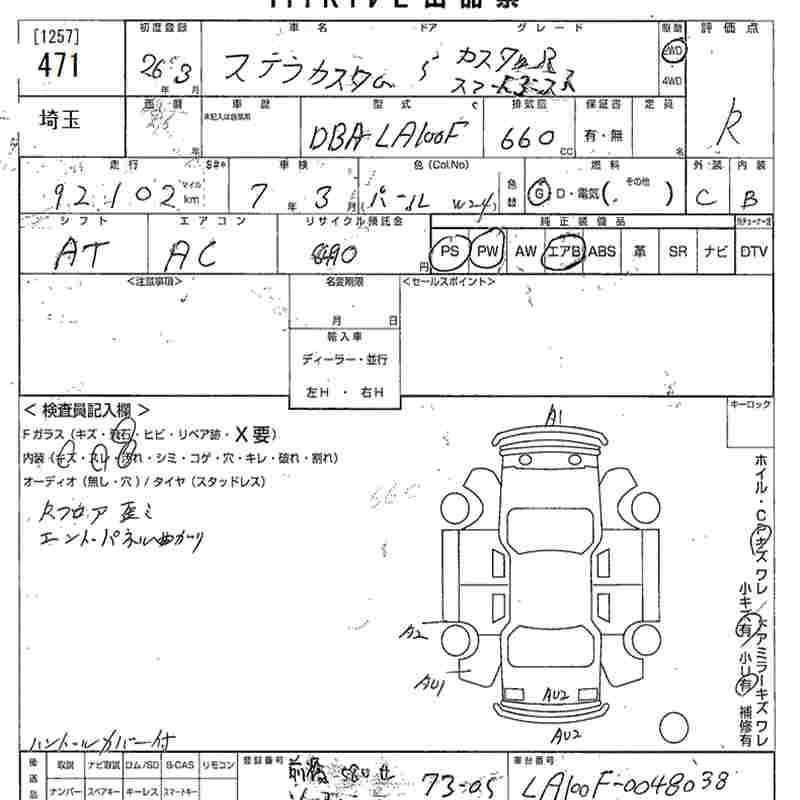 [1257]
471
埼玉
初度登録
26 年 3 月
車名
ステラカスタム
ドア
5
グレード
カスタムR
スマートアシスト
駆動
2WD
4WD
評価点
R
車歴
未記入は自家用
型式
DBA-LA100F
排気量
660 cc
保証書
有・無
定員
名
走行
92,102 マイル km
車検
7 年 3 月
色 (Col.No)
パール W24
色替
燃料
G D・電気 ( その他 )
外装
C
内装
B
シフト
AT
エアコン
AC
リサイクル預託金
円
純正装備品
PS PW AW エアB ABS 革 SR ナビ DTV
<注意事項>
名変期限
月 日
輸入車
ディーラー・並行
左H ・ 右H
<セールスポイント>
キーロック
<検査員記入欄>
Fガラス (キズ・飛石・ヒビ・リペア跡・X要)
内装 (キズ・スレ・汚れ・シミ・コゲ・穴・キレ・破れ・割れ)
オーディオ (無し・穴) / タイヤ (スタッドレス)
Rフロア歪ミ
エンドパネル曲がり
ハンドルカバー付
A1
A2
AU1
AU2
AU2
ホイル・CPキズワレ/ドアミラーキズワレ
小キズ有 小凹有 補修有
後送品
取説 ナビ取説 ロム/SD B-CAS リモコン
ナンバー スペアキー キーレス スマートキー
登録番号
前橋 580 せ
73-05
車台番号
LA100F-0048038